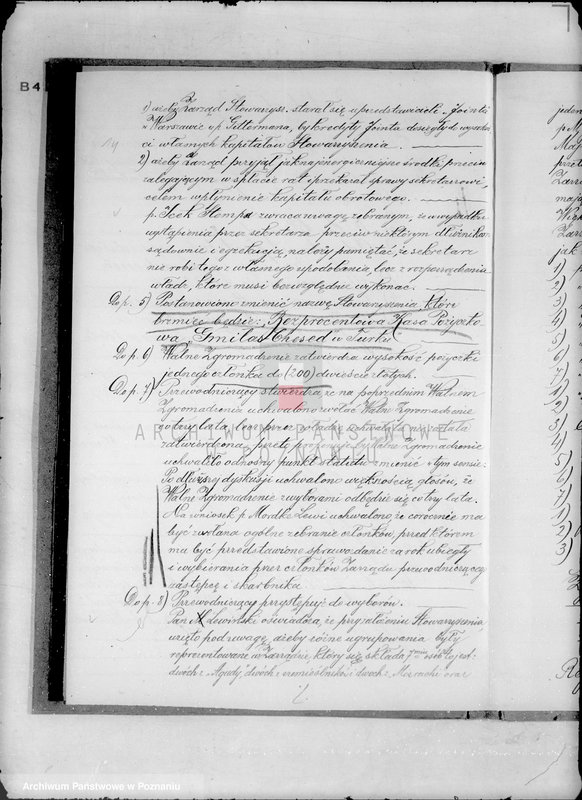 B 4
1) ażeby Zarząd Stowarzysz. starał się u przedstawicieli "Jointu
w Warszawie p. Gittermana, by kredyty Jointu doszły do wysokoś-
ci własnych kapitałów Stowarzyszenia.
2) ażeby Zarząd przyjął jaknajenergiczniejsze środki przeciw
zalegającym w spłacie rat i przekazał sprawy sekretarzowi,
celem wpłynienie kapitału obrotowego.
p. Icek Stempa zwraca uwagę zebranym, że w wypadku
wystąpienia przez sekretarza przeciw niektórym dłużnikom
sądownie i egzekucją, należy pamiętać, że sekretarz
nie robi tego z własnego upodobania, lecz z rozporządzenia
władz, które musi bezwzględnie wykonać.
Do p. 5) Postanowiono zmienić nazwę Stowarzyszenia, które
brzmieć będzie: Bezprocentowa Kasa Pożyczko-
wa "Gmilas Chesed" w Turku
Do p. 6) Walne Zgromadzenie zatwierdza wysokość pożyczki
jednego członka do (200) dwieście złotych.
Do p. 7) Przewodniczący stwierdza, że na poprzednim Walnem
Zgromadzeniu uchwalono zwołać Walne Zgromadzenie
co trzy lata, lecz przez
zatwierdzona, przeto proponuje by Walne Zgromadzenie
uchwaliło odnośny punkt statutu zmienić w tym sensie.
Po dłuższej dyskusji uchwalono większością głosów, że
Walne Zgromadzenie z wyborami odbędzie się co trzy lata.
Na wniosek p. Mordki Lewi uchwalono, że corocznie ma
być zwołana ogólne zebranie członków, przed którem
ma być przedstawione sprawozdanie za rok ubiegły
i wybierania przez członków Zarządu przewodniczącego
zastępcę i skarbnika.
Do p. 8) Przewodniczący przystępuje do wyborów.
Pan Lewiński oświadcza, że przyjaciele Stowarzyszenia,
wzięto pod uwagę, ażeby różne ugrupowania były
reprezentowane w Zarządzie, który się składa z 7miu osób to jest:
dwóch z "Agudy", dwóch z rzemieślników i dwóch z "Mizrachi" oraz
ARCHIWUM PAŃSTWOWE
W POZNANIU
Archiwum Państwowe w Poznaniu